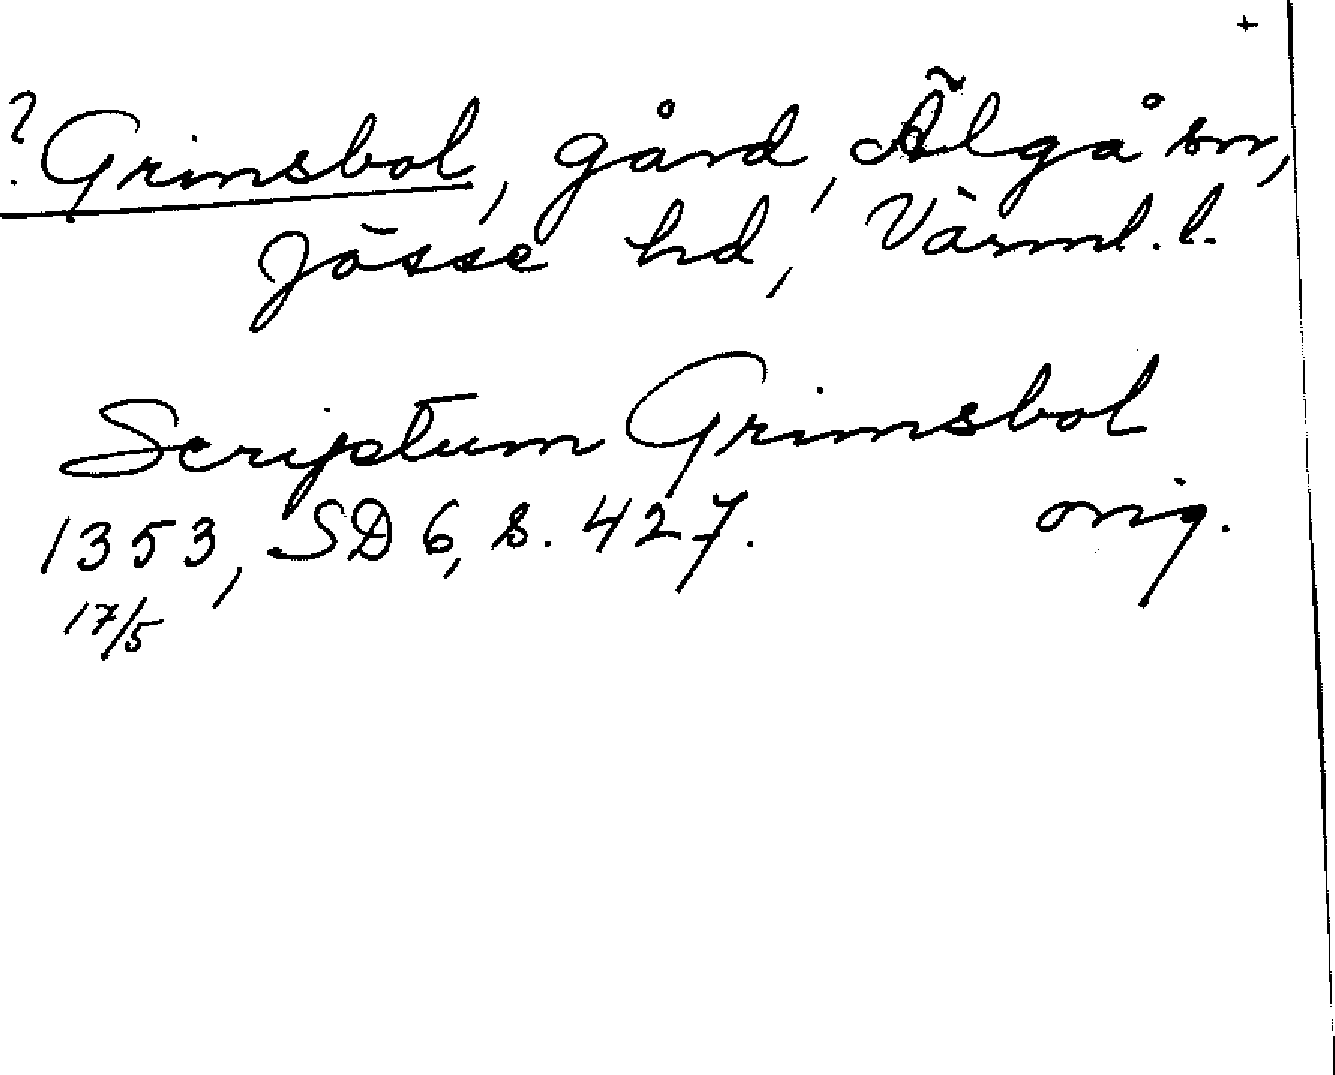 +
? Grimsbol, gård, Älgå sn,
Jösse hd, Värml. l.
Scriptum Grimsbol
1353, SD 6, s. 427. orig.
17/5